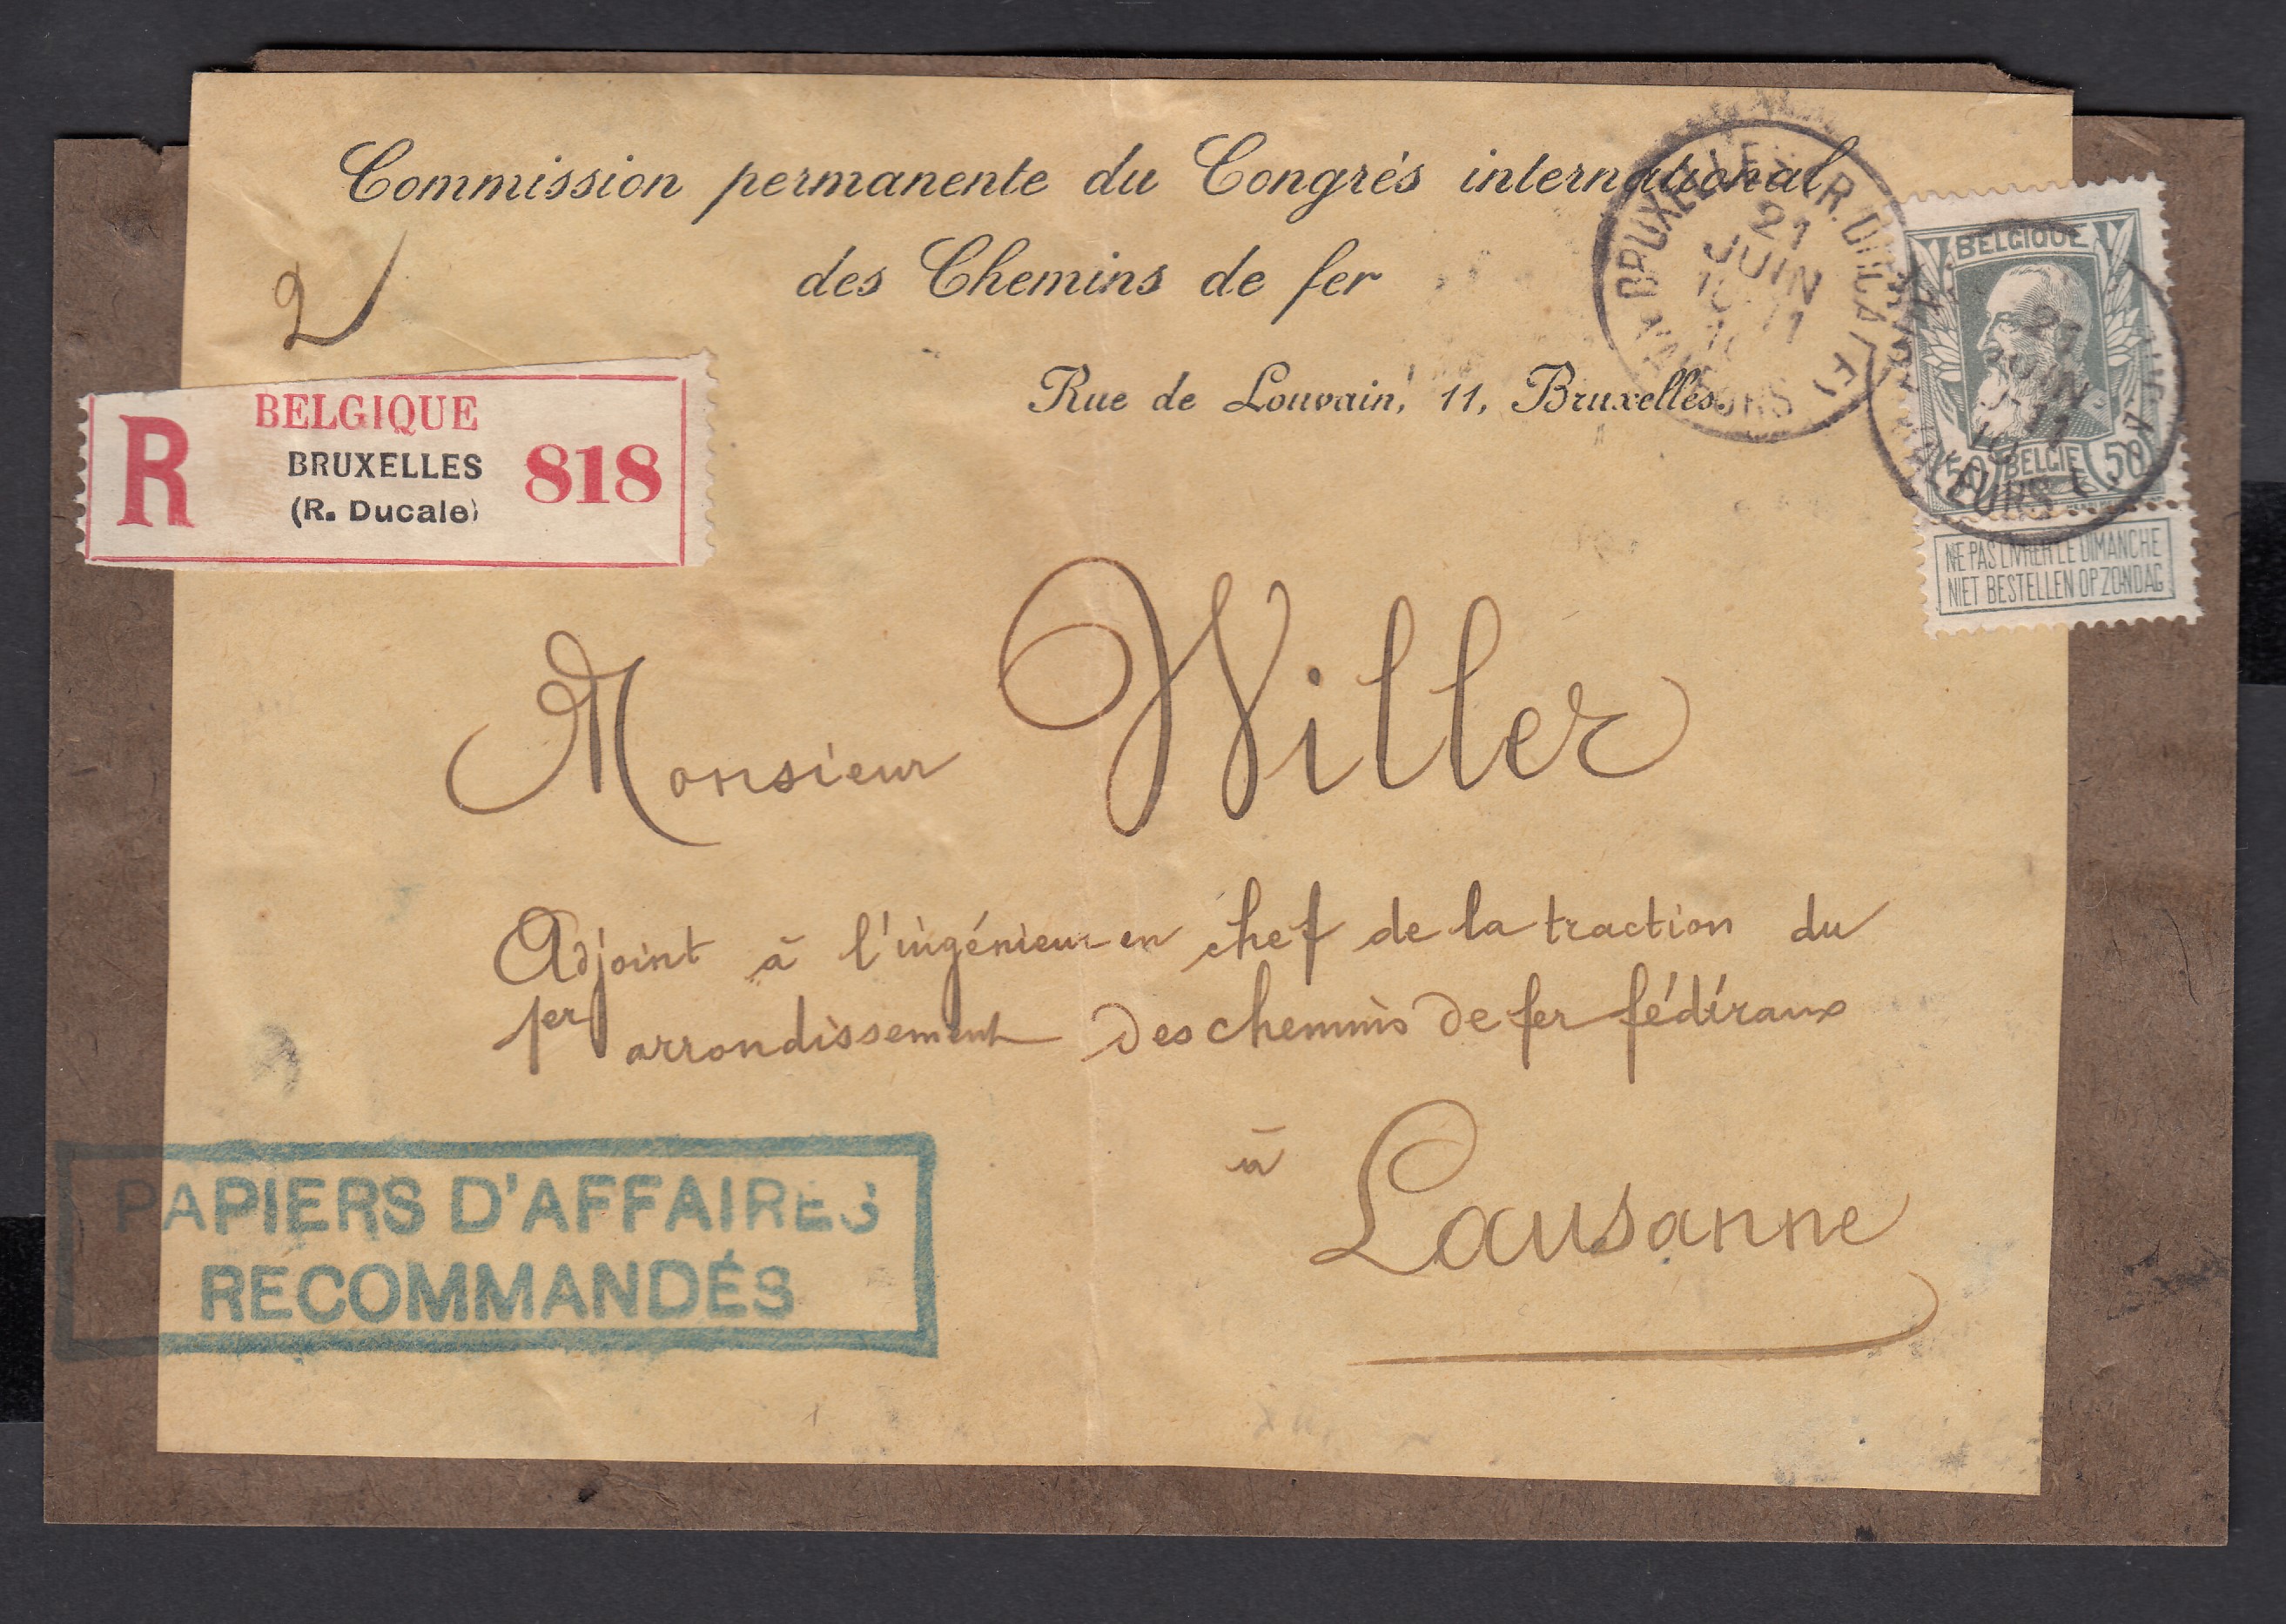 Commission permanente du Congrès international
des Chemins de fer
Rue de Louvain, 11, Bruxelles.
2
R
BELGIQUE
BRUXELLES
(R. Ducale)
818
BRUXELLES (R. DUCALE)
21
JUIN
VALEURS
BELGIQUE
21
JUIN
11
10
VALEURS
50 BELGIE 50
NE PAS LIVRER LE DIMANCHE
NIET BESTELLEN OP ZONDAG
Monsieur Willer
Adjoint à l'ingénieur en chef de la traction du
1er arrondissement des chemins de fer fédéraux
à
Lausanne
PAPIERS D'AFFAIRES
RECOMMANDÉS